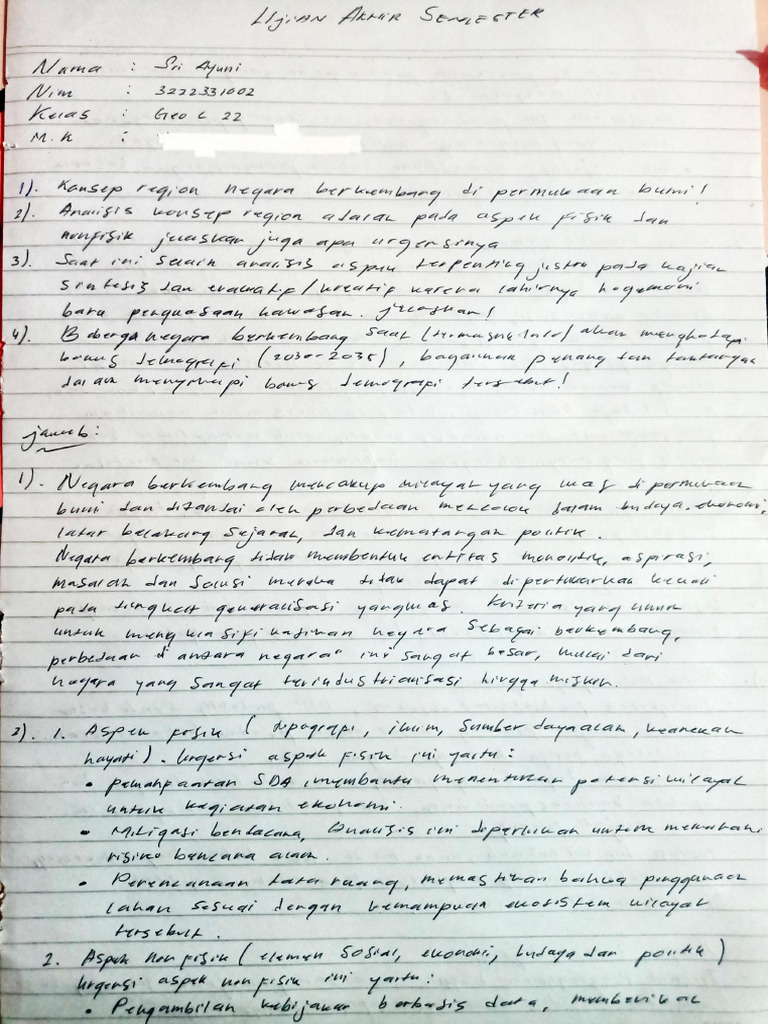 Ujian Akhir Semester
Nama : Sri Ayuni
Nim : 3222331002
Kelas : Geo C 22
M.K :
1). Konsep region negara berkembang di permukaan bumi!
2). Analisis konsep region adalah pada aspek fisik dan
nonfisik jelaskan juga apa urgensinya
3). Saat ini selain analisis aspek terpenting justru pada kajian
sintesis dan evaluatif/kreatif karena lahirnya hegemoni
baru penguasaan kawasan. jelaskan!
4). Beberapa negara berkembang saat (termasuk Indo) akan menghadapi
bonus demografi (2030-2035), bagaimana peluang dan tantangan
dalam menyikapi bonus demografi tersebut!
jawab:
1). Negara berkembang mencakup wilayah yang luas di permukaan
bumi dan ditandai oleh perbedaan mencolok dalam budaya, ekonomi,
latar belakang sejarah, dan kematangan politik.
Negara berkembang tidak membentuk entitas monolitik, aspirasi,
masalah dan solusi mereka tidak dapat dipertukarkan kecuali
pada tingkat generalisasi yang luas. Kriteria yang umum
untuk mengklasifikasikan negara sebagai berkembang,
perbedaan diantara negara" ini sangat besar, mulai dari
negara yang sangat terindustrialisasi hingga miskin.
2). 1. Aspek fisik (topografi, iklim, sumber daya alam, keanekaan
hayati). Urgensi aspek fisik ini yaitu:
• pemanfaatan SDA, membantu menentukan potensi wilayah
untuk kegiatan ekonomi.
• Mitigasi bendacana, Analisis ini diperlukan untuk memahami
risiko bencana alam.
• Perencanaan tata ruang, memastikan bahwa penggunaan
lahan sesuai dengan kemampuan ekosistem wilayah
tersebut.
2. Aspek non fisik (elemen sosial, ekonomi, budaya dan politik)
Urgensi aspek non fisik ini yaitu:
• Pengambilan kebijakan berbasis data, memberikan